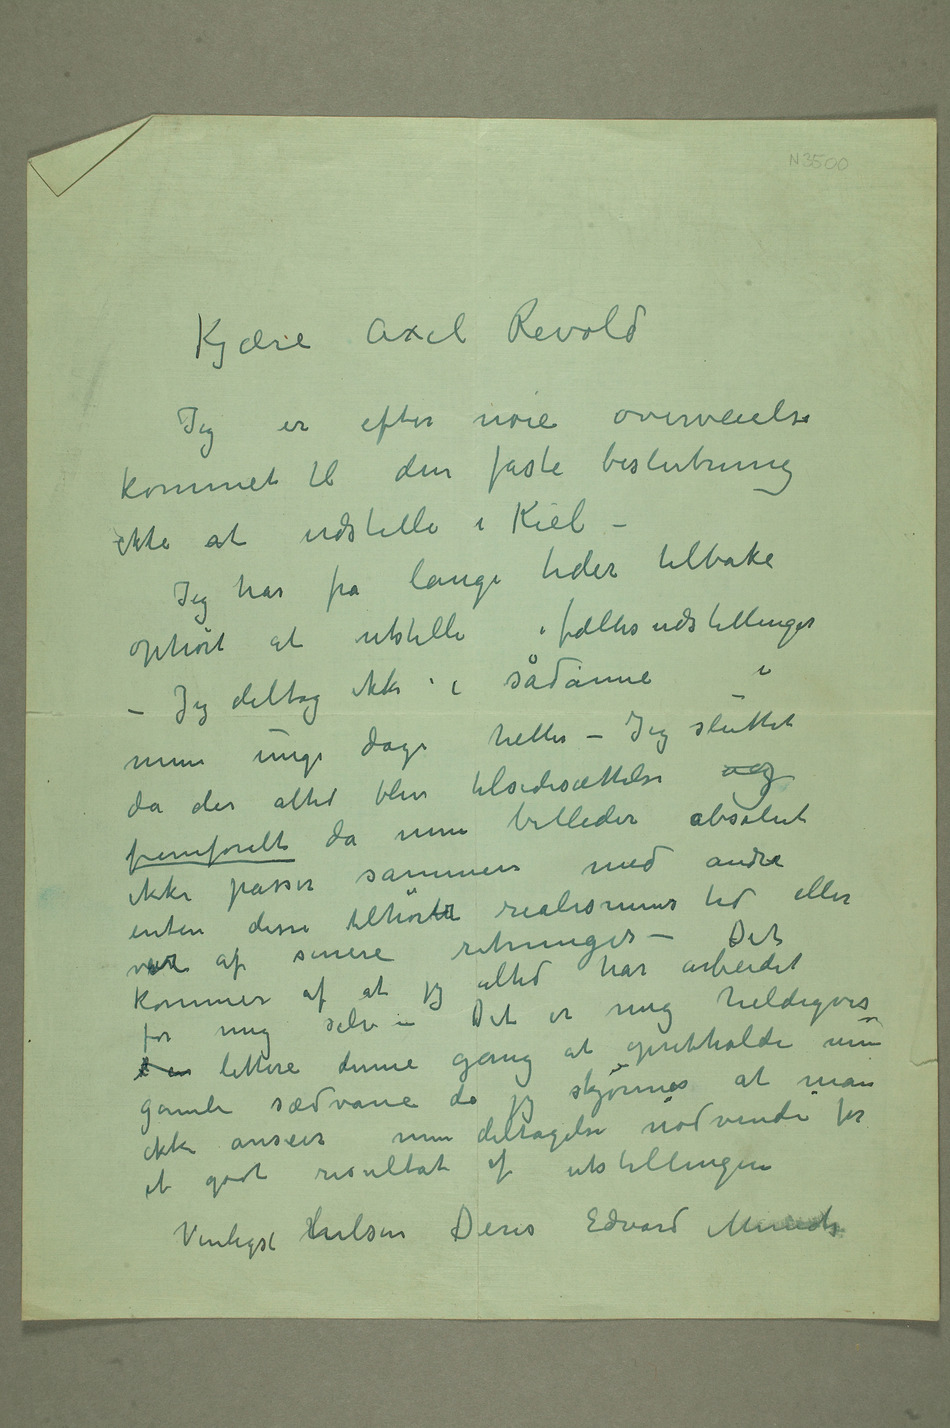 N3500
Kjære Axel Revold
Jeg er efter nøie overveielse
kommet til den faste beslutning
ikke at udstille i Kiel –
Jeg har fra lange tider tilbake
ophørt at utstille i fælles udstillinger
– Jeg deltog ikke i sådanne i
mine unge dage heller – Jeg sluttet
da der altid blev tilsidesættelse og
fremforalt da mine billeder absolut
ikke passer sammen med andre
enten disse tilhørte realismens tid eller
var af senere retninger – Det
kommer af at jeg altid har arbeidet
for mig selv – Det er mig heldigvis
lettere denne gang at oprettholde min
gamle sædvane da jeg skjønner at man
ikke anseer min deltagelse nødvendi for
et godt resultat af utstillingen
Venligst hilsen Deres Edvard Munch